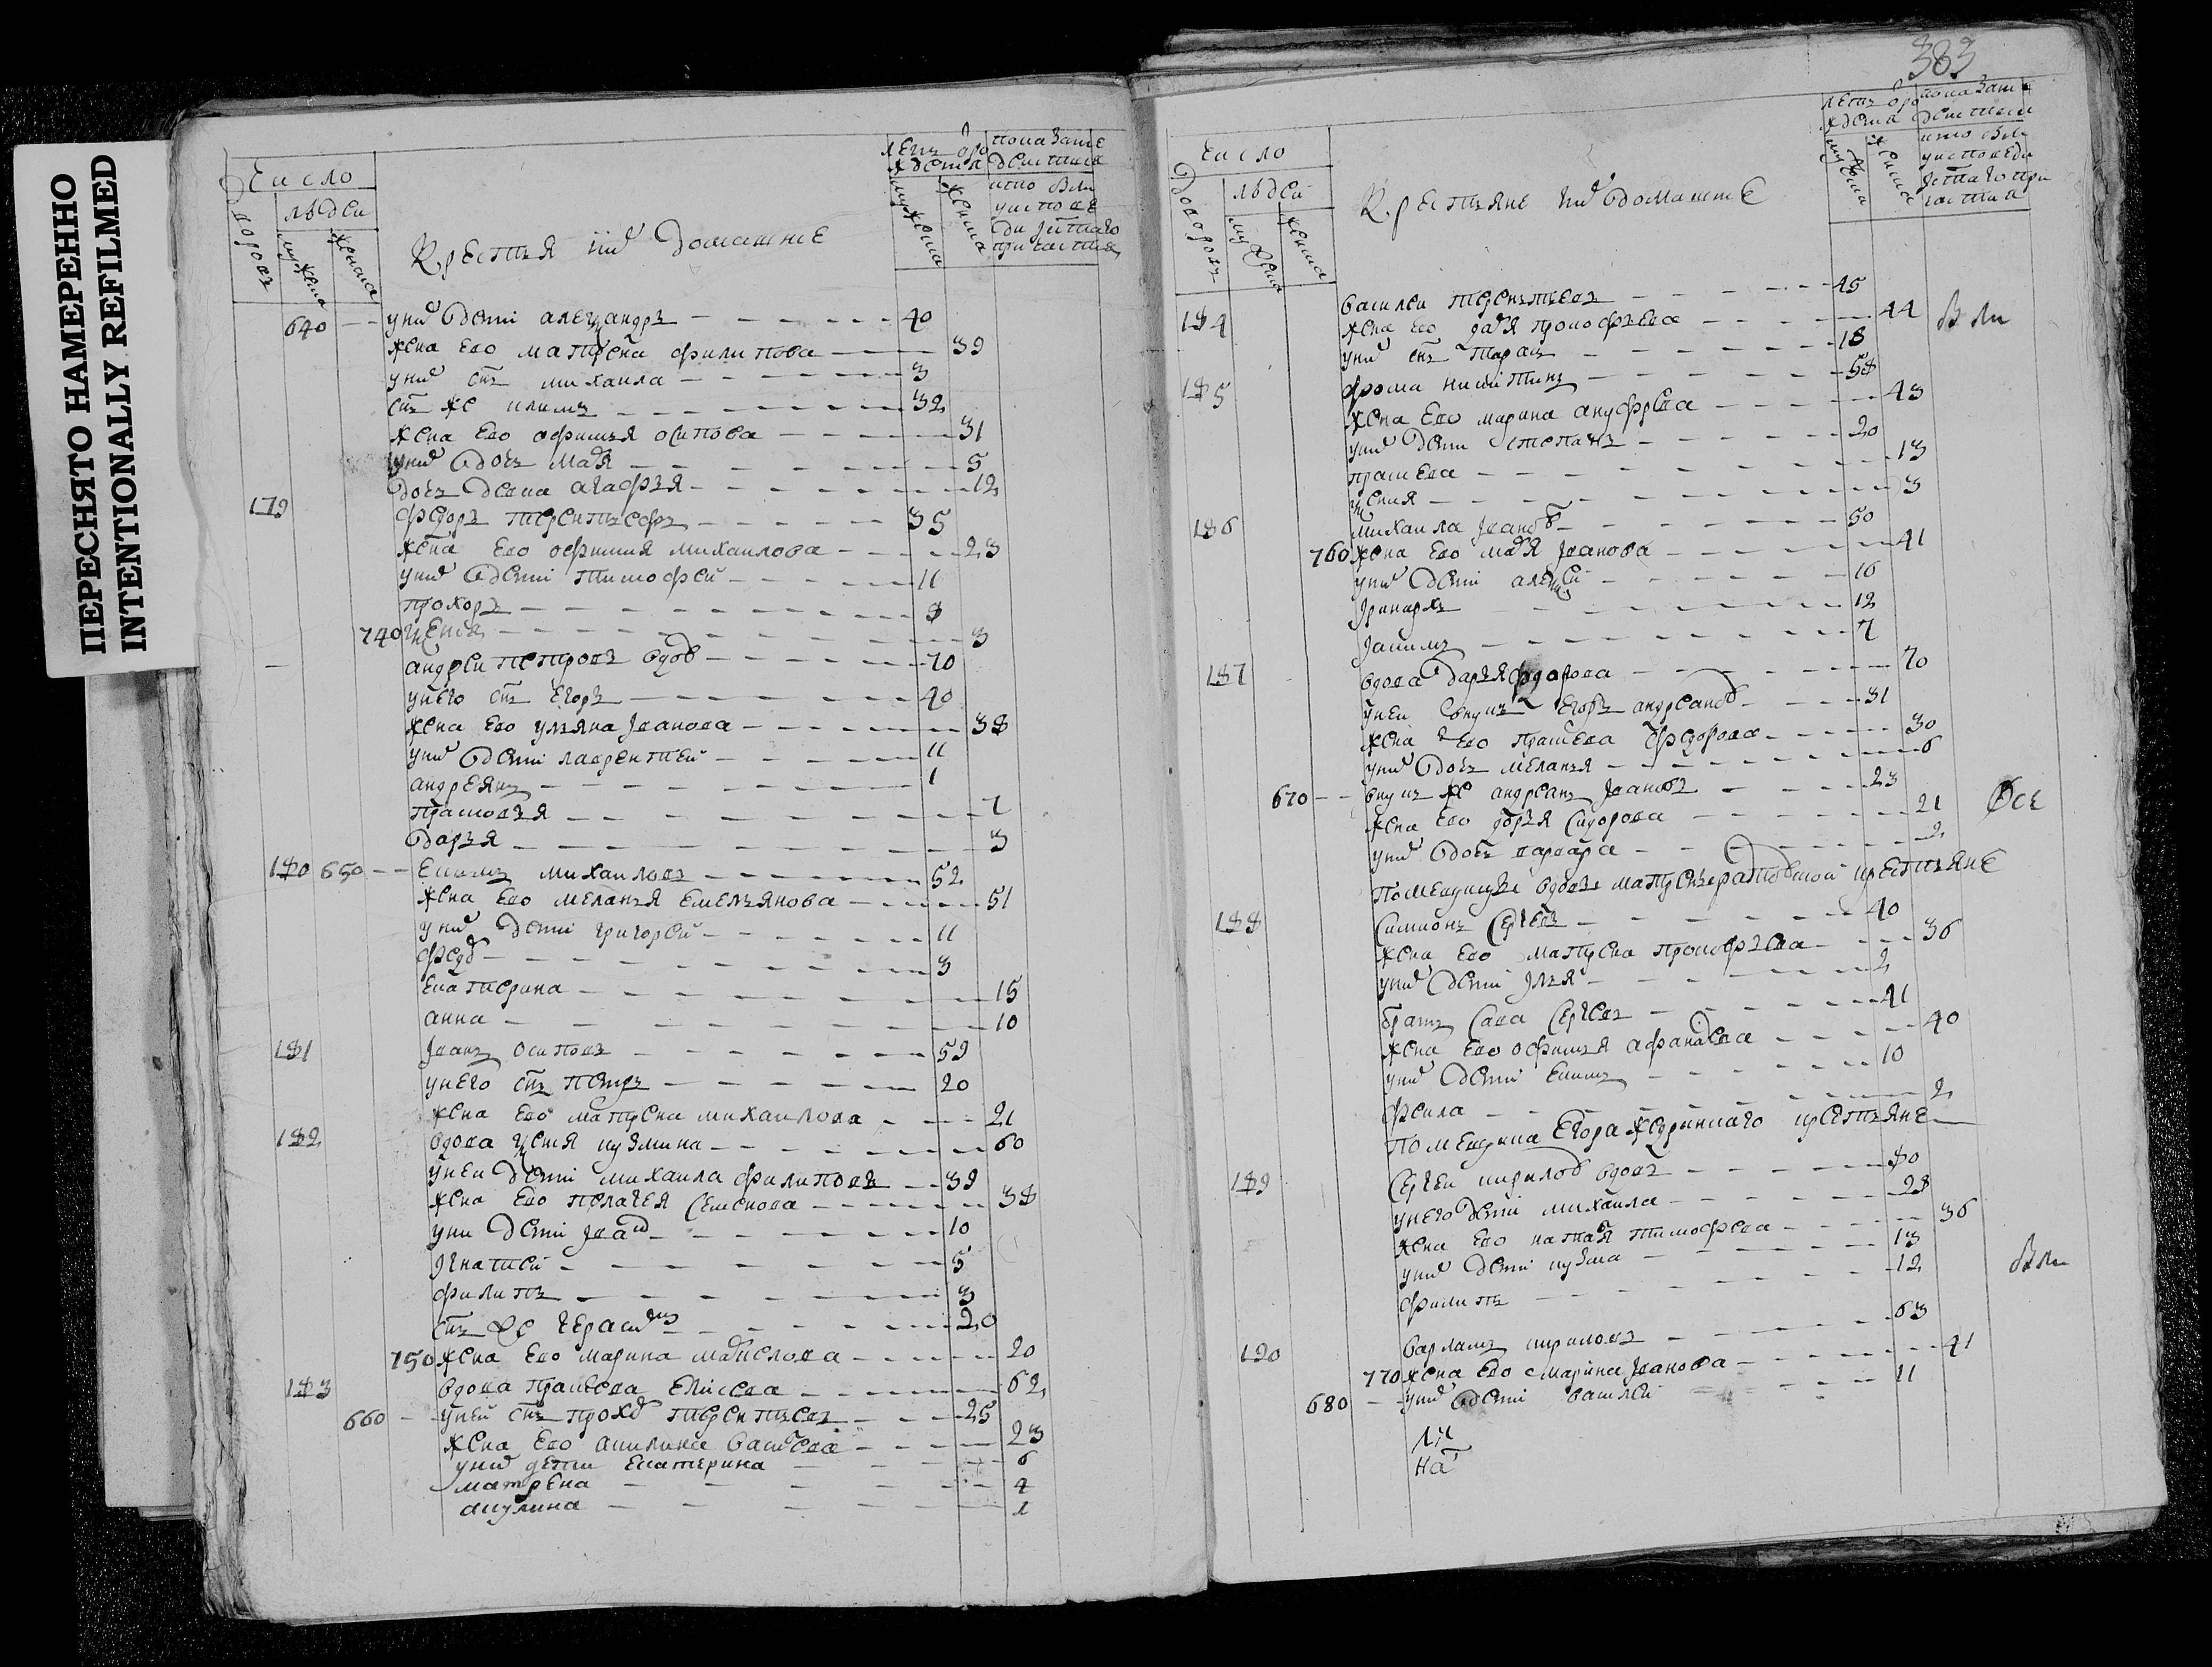 ПЕРЕСНЯТО НАМЕРЕННО
INTENTIONALLY REFILMED
Число
дворовъ
людей
мужска
женска
Крестьяне иихъ домашние
лѣтъ отъ рождения
мужска
женска
показание действия кто былъ у исповеди и святаго причастия
640 у нихъ дети александръ 40
жена ево матрена филипова 39
у нихъ снъ михаила 3
снъ же климъ 32
жена ево афимья осипова 31
у нихъ дочь марья 5
дочь девка агафья 12
179 федоръ терентьефъ 35
жена ево офимия михаилова 23
у нихъ дети тимофей 11
прохоръ 8
740 ксения 3
андреи петровъ вдовъ 70
у него снъ егоръ 40
жена ево ульяна Iванова 38
у нихъ дети лаврентей 11
андреянъ 1
прасковья 7
дарья 3
180 650 Екимъ михаиловъ 52
жена ево меланья емельянова 51
у нихъ дети григорей 11
федоръ 3
екатерина 15
анна 10
181 Iванъ осиповъ 59
у него снъ петръ 20
жена ево матрена михаилова 21
182 вдова ксения кузмина 60
у неи дети михаила филиповъ 39
жена ево пелагея семенова 38
у нихъ дети Iванъ 10
Iгнатей 5
филипъ 3
снъ же герасимъ 20
750 жена ево марина 20
183 вдова праскева елисева 62
660 у ней снъ прохоръ терентьевъ 25
жена ево акилина васильева 23
у нихъ дети екатерина 6
матрена 4
акулина 1
383
Число
дворовъ
людей
мужска
женска
Крестьяне иихъ домашние
лѣтъ отъ рождения
мужска
женска
показание действия кто были у исповеди и святаго причастия
василеи терентьевъ 45
184 жена ево дарья прокофьева 44 были
у нихъ снъ тарасъ 18
185 фома никитинъ 58
жена ево марина ануфрева 43
у нихъ дети степанъ 20
праскева 13
ксения 3
186 михаила Iвановъ 50
760 жена ево марья Iванова 41
у нихъ дети алексей 16
Iринархъ 12
Iакимъ 7
187 вдова дарья федорова 70
у неи внукъ егоръ андреановъ 31
жена ево праскева федорова 30
у нихъ дочь меланья 6
670 внукъ же андреанъ Iвановъ 23
жена ево дарья сидорова 21 все
у нихъ дочь варвара 2
помещицы вдовы матрены крестьяне
188 симионъ сергѣевъ 40
жена ево матрена прокофьева 36
у нихъ дети Iлья 2
братъ сава сергеевъ 41
жена ево офимья афанасева 40
у нихъ дети екимъ 10
фекла 2
помещика егора жедринскаго крестьяне
189 сергеи кириловъ вдовъ 80
у него дети михаила 28
жена ево наталья тимофеева 36
у нихъ дети кузма 13 были
филипъ 12
190 варламъ кириловъ 63
770 жена ево марина Iванова 41
680 у нихъ дети василей 11